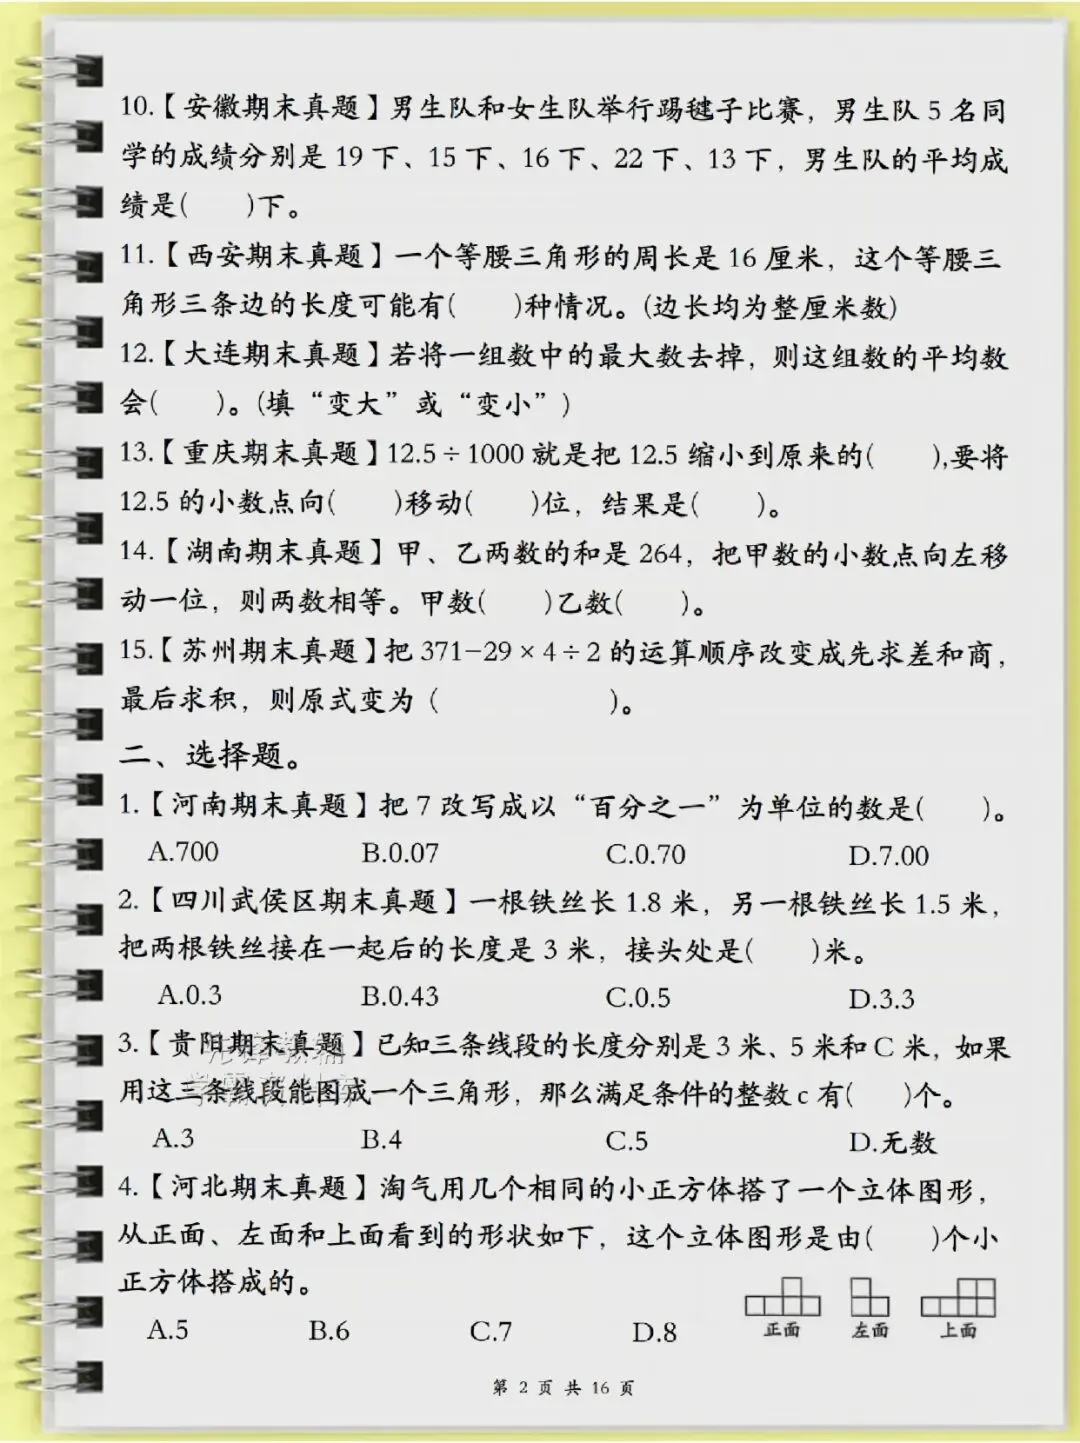 10.【安徽期末真题】男生队和女生队举行踢毽子比赛，男生队 5 名同
学的成绩分别是 19 下、15 下、16 下、22 下、13 下，男生队的平均成
绩是(　　)下。
11.【西安期末真题】一个等腰三角形的周长是 16 厘米，这个等腰三
角形三条边的长度可能有(　　)种情况。(边长均为整厘米数)
12.【大连期末真题】若将一组数中的最大数去掉，则这组数的平均数
会(　　)。(填“变大”或“变小”)
13.【重庆期末真题】12.5÷1000 就是把 12.5 缩小到原来的(　　),要将
12.5 的小数点向(　　)移动(　　)位，结果是(　　)。
14.【湖南期末真题】甲、乙两数的和是 264，把甲数的小数点向左移
动一位，则两数相等。甲数(　　)乙数(　　)。
15.【苏州期末真题】把 371−29×4÷2 的运算顺序改变成先求差和商，
最后求积，则原式变为（　　　　　　)。
二、选择题。
1.【河南期末真题】把 7 改写成以“百分之一”为单位的数是(　　)。
A.700　B.0.07　C.0.70　D.7.00
2.【四川武侯区期末真题】一根铁丝长 1.8 米，另一根铁丝长 1.5 米，
把两根铁丝接在一起后的长度是 3 米，接头处是(　　)米。
A.0.3　B.0.43　C.0.5　D.3.3
3.【贵阳期末真题】已知三条线段的长度分别是 3 米、5 米和 C 米，如果
用这三条线段能图成一个三角形，那么满足条件的整数 c 有(　　)个。
A.3　B.4　C.5　D.无数
4.【河北期末真题】淘气用几个相同的小正方体搭了一个立体图形，
从正面、左面和上面看到的形状如下，这个立体图形是由(　　)个小
正方体搭成的。
A.5　B.6　C.7　D.8
正面　左面　上面
第 2 页 共 16 页